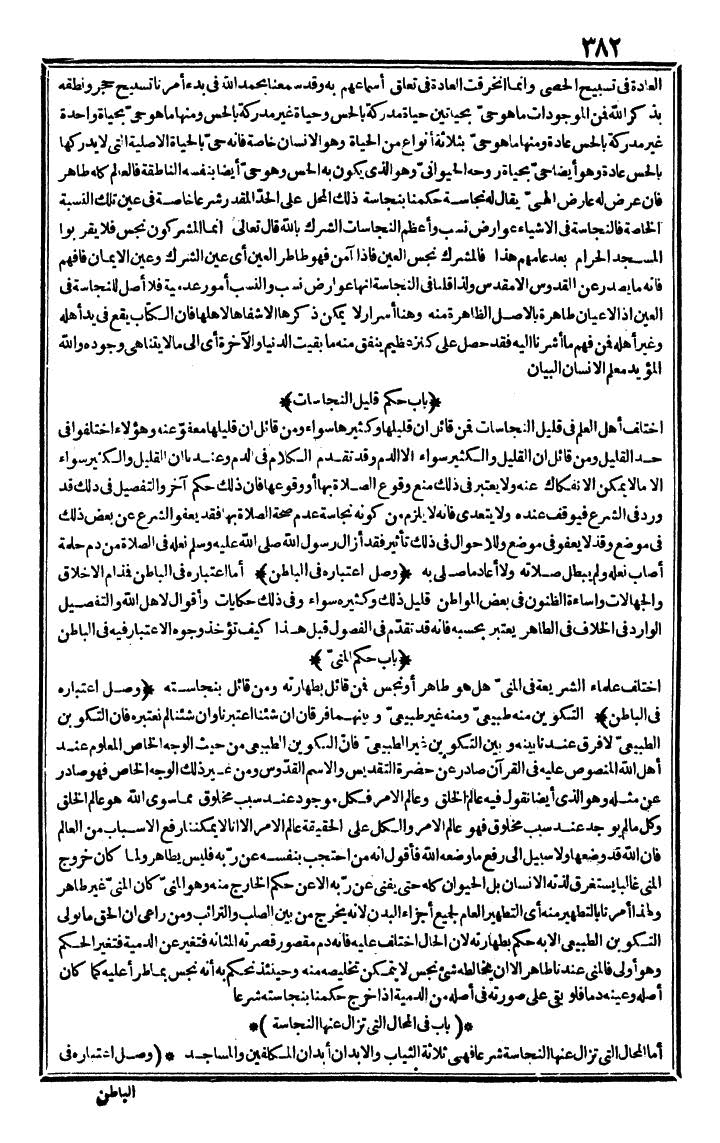 ٣٨٢
العادة فى تسبيح الحصى وانما انخرقت العادة فى تعلق أسماعهم به وقد سمعنا بحمد الله فى بدء أمرنا تسبيح حجر ونطقه
بذكر الله فمن الموجودات ما هو حىّ بحياتين حياة مدركة بالحس وحياة غير مدركة بالحس ومنها ما هو حىّ بحياة واحدة
غير مدركة بالحس عادة ومنها ما هو حىّ بثلاثة أنواع من الحياة وهو الانسان خاصة فانه حىّ بالحياة الاصلية التى لا يدركها
بالحس عادة وهو أيضا حىّ بحياة روحه الحيوانىّ وهو الذى يكون به الحس وهو حىّ أيضا بنفسه الناطقة فالعالم كله طاهر
فان عرض له عارض الهىّ يقال له نجاسة حكمنا بنجاسة ذلك المحل على الحدّ المقدر شرعا خاصة فى عين تلك النسبة
الخاصة فالنجاسة فى الاشياء عوارض نسب وأعظم النجاسات الشرك بالله قال تعالى انما المشركون نجس فلا يقربوا
المسجد الحرام بعد عامهم هذا فالمشرك نجس العين فاذا آمن فهو طاهر العين أى عين الشرك وعين الايمان فافهم
فانه ما يصدر عن القدوس الا مقدس ولذا قلنا فى النجاسة انها عوارض نسب والنسب أمور عدمية فلا أصل للنجاسة فى
العين اذ الاعيان طاهرة بالاصل الظاهرة منه وهنا أسرار لا يمكن ذكرها الا شفاها لاهلها فان الكتاب يقع فى يد أهله
وغير أهله فمن فهم ما أشرنا اليه فقد حصل على كنز عظيم ينفق منه ما بقيت الدنيا والآخرة أى الى ما لا يتناهى وجوده والله
المؤيد معلم الانسان البيان
﴿باب حكم قليل النجاسات﴾
اختلف أهل العلم فى قليل النجاسات فمن قائل ان قليلها وكثيرها سواء ومن قائل ان قليلها معفوّ عنه وهؤلاء اختلفوا فى
حد القليل ومن قائل ان القليل والكثير سواء الا الدم وقد تقدم الكلام فى الدم وعندنا ان القليل والكثير سواء
الا ما لا يمكن الانفكاك عنه ولا يعتبر فى ذلك منع وقوع الصلاة بها أو وقوعها فان ذلك حكم آخر والتفصيل فى ذلك قد
ورد فى الشرع فيوقف عنده ولا يتعدى فانه لا يلزم من كونه نجاسة عدم صحة الصلاة بها فقد يعفو الشرع عن بعض ذلك
فى موضع وقد لا يعفو فى موضع وللاحوال فى ذلك تأثير فقد أزال رسول الله صلى الله عليه وسلم نعله فى الصلاة من دم حلمة
أصاب نعله ولم يبطل صلاته ولا أعاد ما صلى به ﴿وصل اعتباره فى الباطن﴾ أما اعتباره فى الباطن فمذام الاخلاق
والجهالات واساءة الظنون فى بعض المواطن قليل ذلك وكثيره سواء وفى ذلك حكايات وأقوال لاهل الله والتفصيل
الوارد فى الخلاف فى الظاهر يعتبر بحسبه فانه قد تقدّم فى الفصول قبل هذا كيف تؤخذ وجوه الاعتبار فيه فى الباطن
﴿باب حكم المنىّ﴾
اختلف علماء الشريعة فى المنىّ هل هو طاهر أو نجس فمن قائل بطهارته ومن قائل بنجاسته ﴿وصل اعتباره
فى الباطن﴾ التكوين منه طبيعىّ ومنه غير طبيعىّ وبينهما فرقان ان شئنا اعتبرناه وان شئنا لم نعتبره فان التكوين
الطبيعىّ لا فرق عندنا بينه وبين التكوين غير الطبيعىّ فانّ التكوين الطبيعى من حيث الوجه الخاص المعلوم عند
أهل الله المنصوص عليه فى القرآن صادر عن حضرة التقديس والاسم القدّوس ومن غير ذلك الوجه الخاص فهو صادر
عن مثله وهو الذى أيضا نقول فيه عالم الخلق وعالم الامر فكل موجود عند سبب مخلوق مما سوى الله هو عالم الخلق
وكل ما لم يوجد عند سبب مخلوق فهو عالم الامر والكل على الحقيقة عالم الامر الا انا لا يمكننا رفع الاسباب من العالم
فان الله قد وضعها ولا سبيل الى رفع ما وضعه الله فأقول انه من احتجب بنفسه عن ربه فليس بطاهر ولما كان خروج
المنى غالبا يستغرق لذته الانسان بل الحيوان كله حتى يفنى عن ربه الا عن حكم الخارج منه وهو المنىّ كان المنىّ غير طاهر
ولهذا أمرنا بالتطهير منه أى التطهير العام لجميع أجزاء البدن لانه يخرج من بين الصلب والترائب ومن راعى ان الحق ما تولى
التكوين الطبيعى الا به حكم بطهارته لان الحال اختلف عليه فانه دم مقصور قصرته المثانة فتغير عن الدمية فتغير الحكم
وهو أولى فالمنى عندنا طاهر الا ان يخالطه شئ نجس لا يتمكن تخليصه منه وحينئذ نحكم به أنه نجس بما طرأ عليه كما كان
أصله وعينه دما فلو بقى على صورته فى أصله من الدمية اذا خرج حكمنا بنجاسته شرعا
* ( باب فى المحال التى تزال عنها النجاسة ) *
أما المحال التى تزال عنها النجاسة شرعا فهى ثلاثة الثياب والابدان أبدان المكلفين والمساجد * (وصل اعتباره فى
الباطن